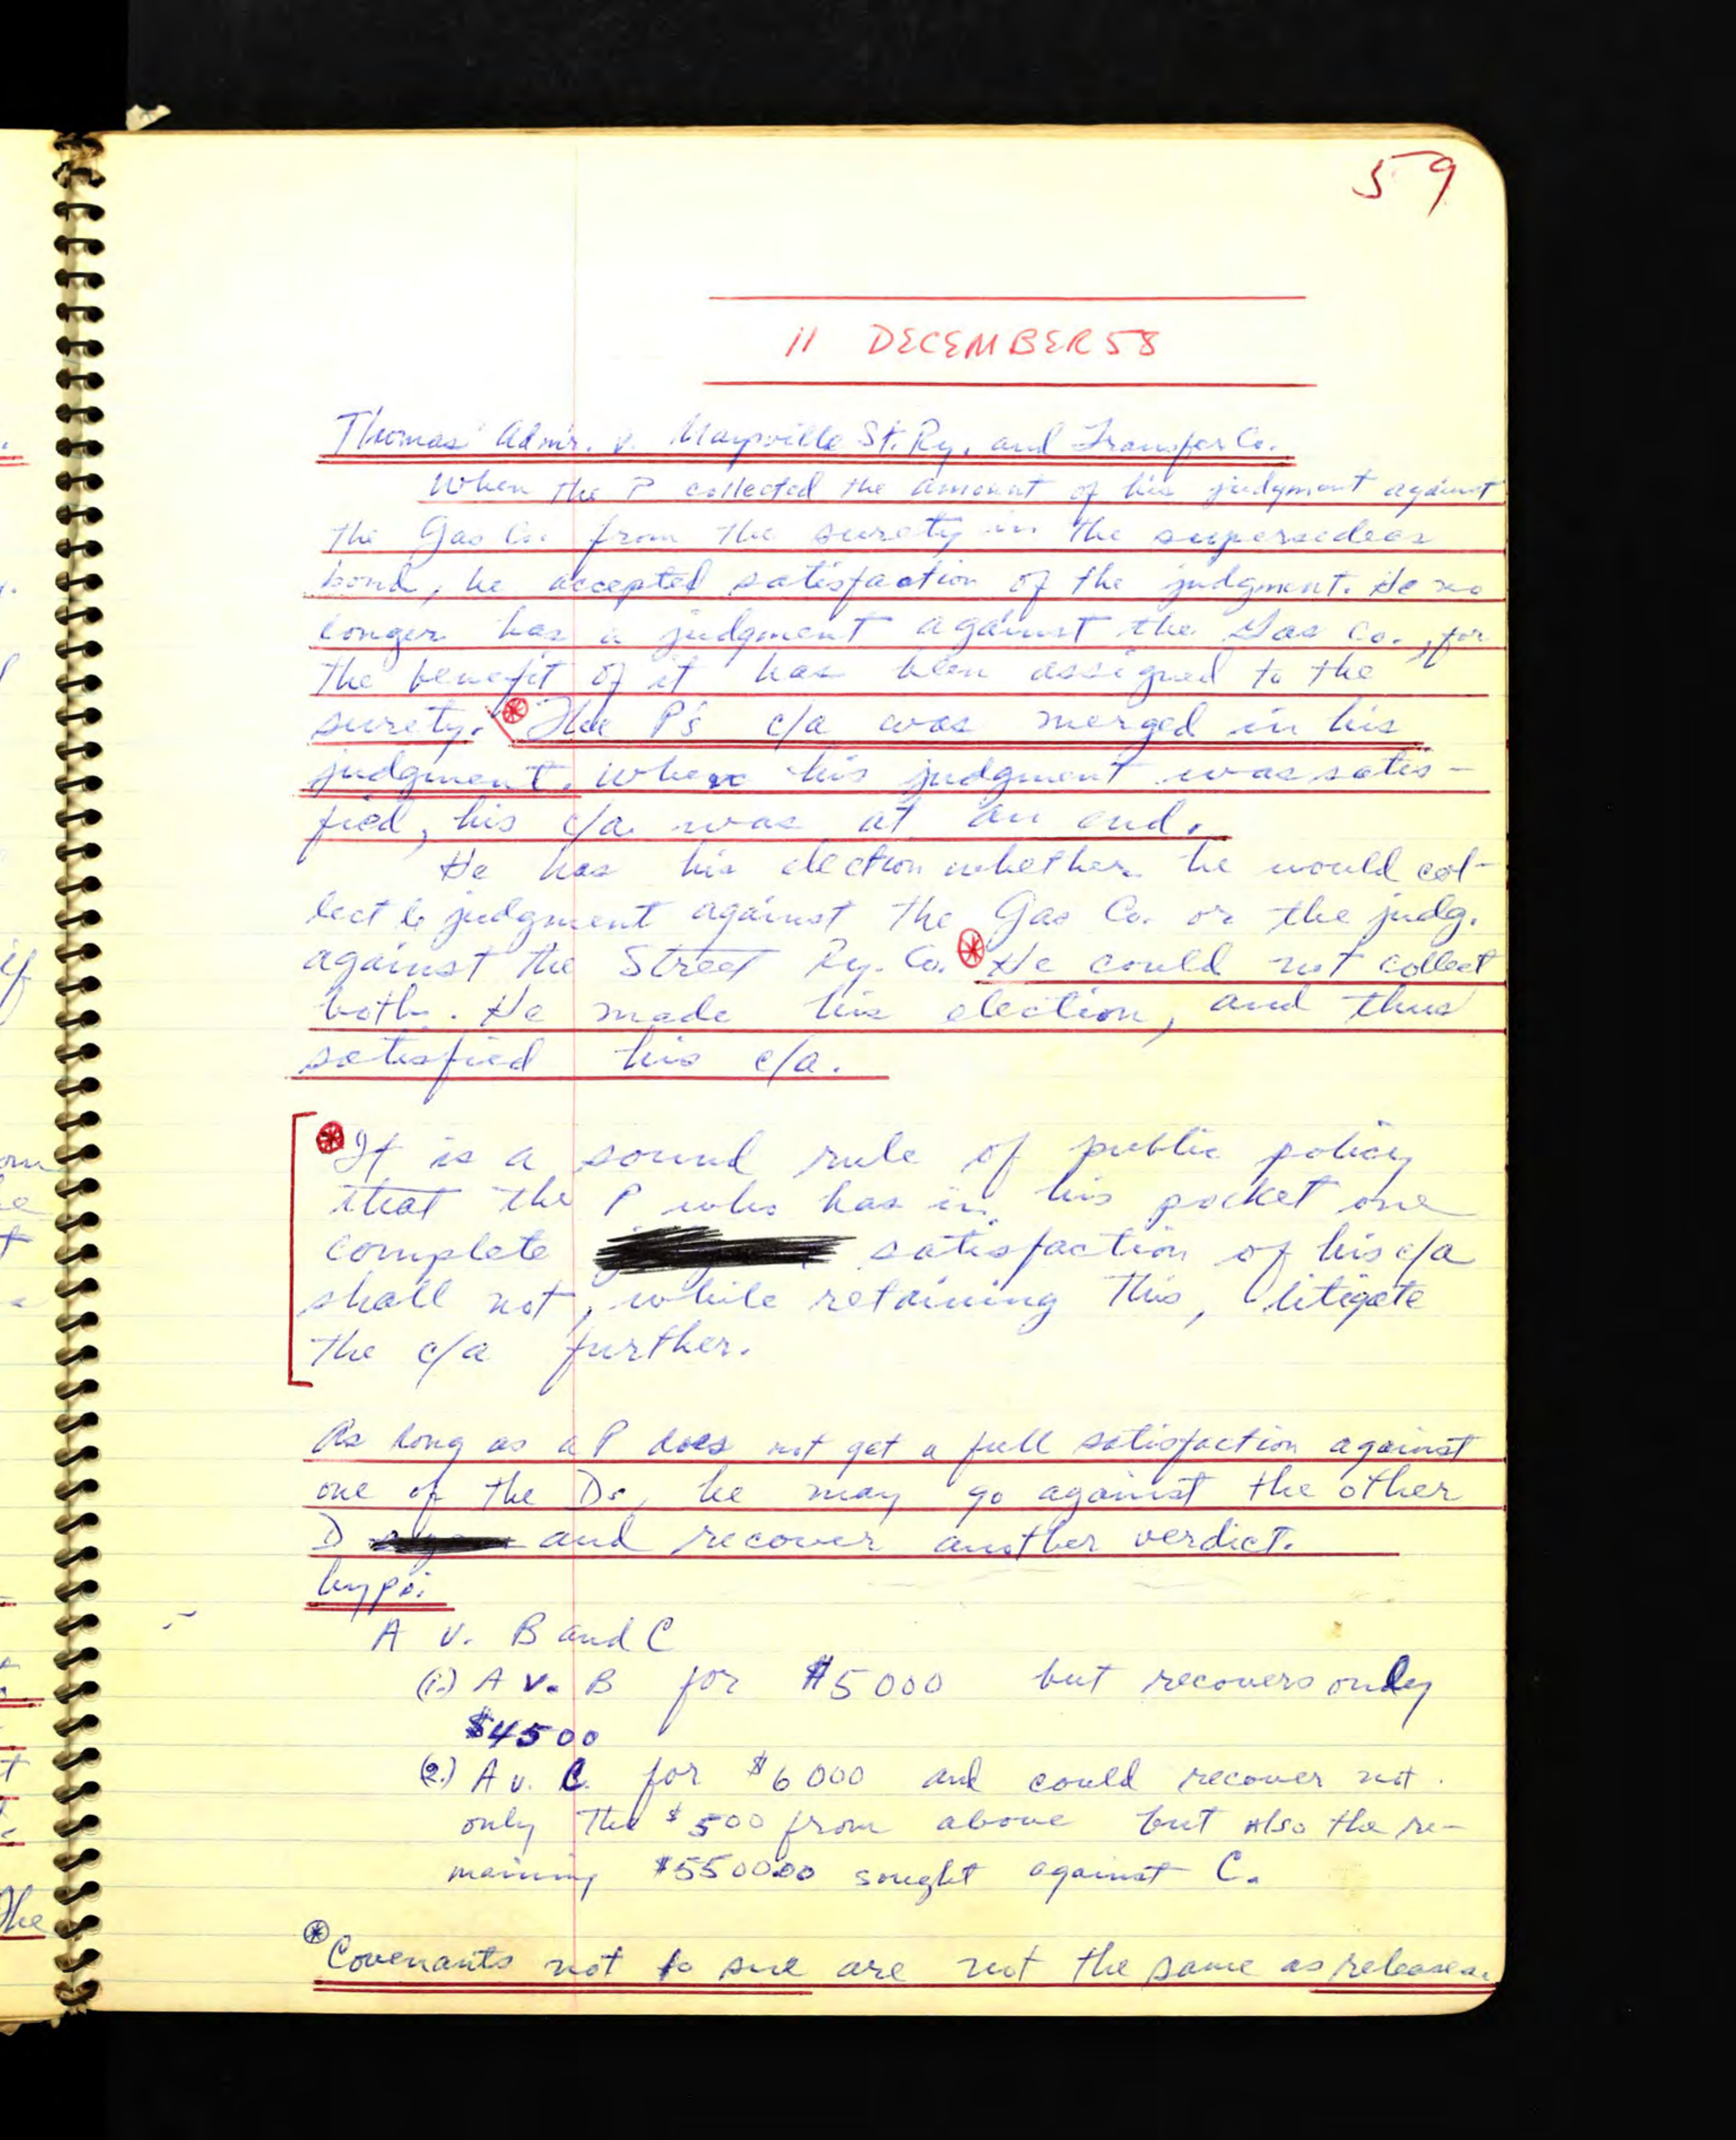 59
11 DECEMBER 58
Thomas' Adm'r. v. Maysville St. Ry. and Transfer Co.
When the P collected the amount of his judgment against
the Gas Co. from the surety in the supersedeas
bond, he accepted satisfaction of the judgment. He no
longer has a judgment against the Gas Co., for
the benefit of it has been assigned to the
surety. The P's c/a was merged in his
judgment. When his judgment was satis-
fied, his c/a was at an end.
He has his election whether he would col-
lect judgment against the Gas Co. or the judg.
against the Street Ry. Co. He could not collect
both. He made his election, and thus
satisfied his c/a.
It is a sound rule of public policy
that the P who has in his pocket one
complete satisfaction of his c/a
shall not, while retaining this, litigate
the c/a further.
As long as a P does not get a full satisfaction against
one of the Ds, he may go against the other
D and recover another verdict.
hypo:
A v. B and C
(1.) A v. B for $5000 but recovers only
$4500
(2.) A v. C. for $6000 and could recover not
only the $500 from above but also the re-
maining $5500.00 sought against C.
Covenants not to sue are not the same as releases.